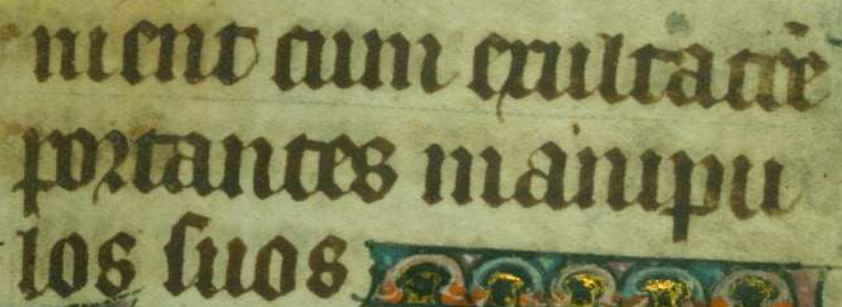 nient cum exultatiõe
portantes manipu
los suos